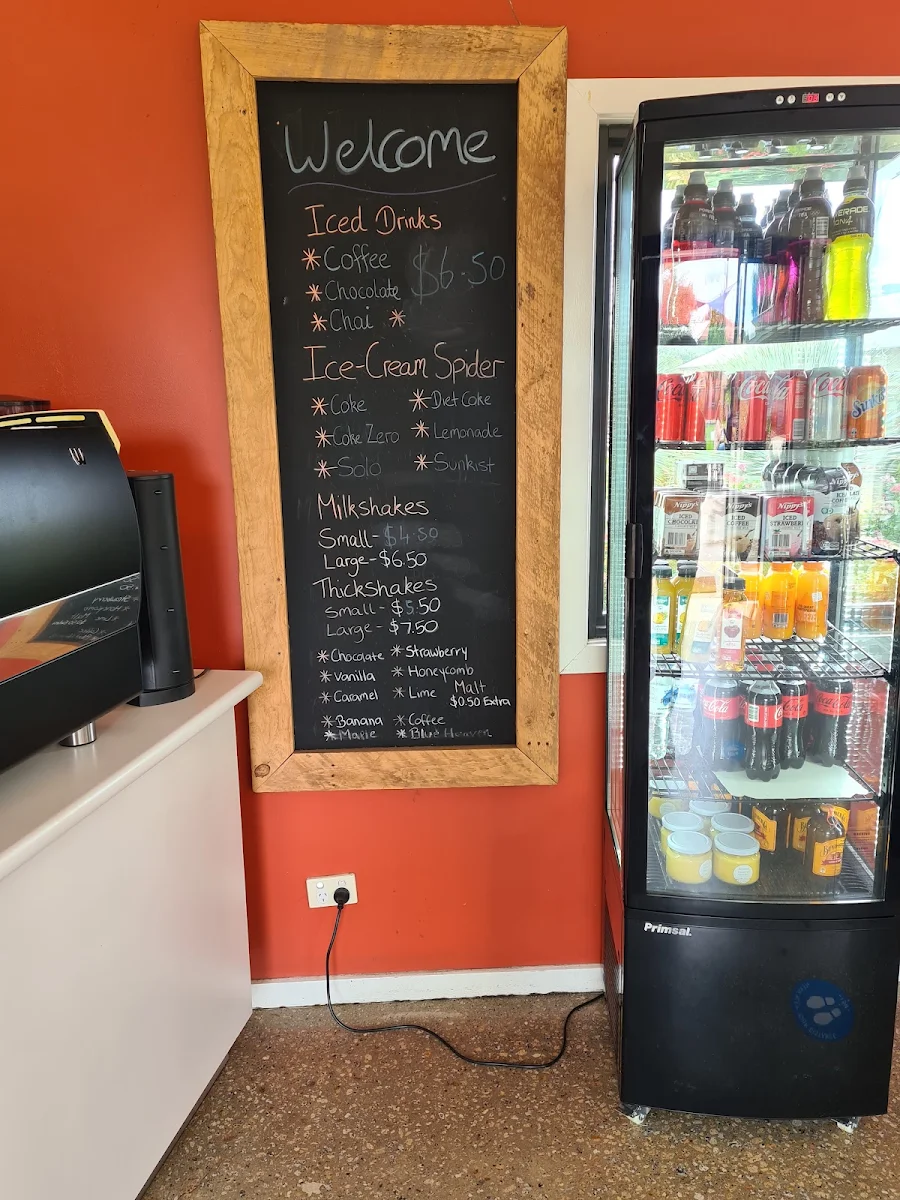 Welcome
Iced Drinks
* Coffee $6.50
* Chocolate
* Chai *
Ice-Cream Spider
* Coke * Diet Coke
* Coke Zero * Lemonade
* Solo * Sunkist
Milkshakes
Small - $4.50
Large - $6.50
Thickshakes
Small - $5.50
Large - $7.50
* Chocolate * Strawberry
* Vanilla * Honeycomb
* Caramel * Lime Malt
$0.50 Extra
* Banana * Coffee
* Maple * Blue Heaven
ERADE
Coca-Cola
Sunkist
Nippy's Nippy's Nippy's
ICED CHOCOLATE ICED COFFEE ICED STRAWBERRY
Coca-Cola
Primsal.